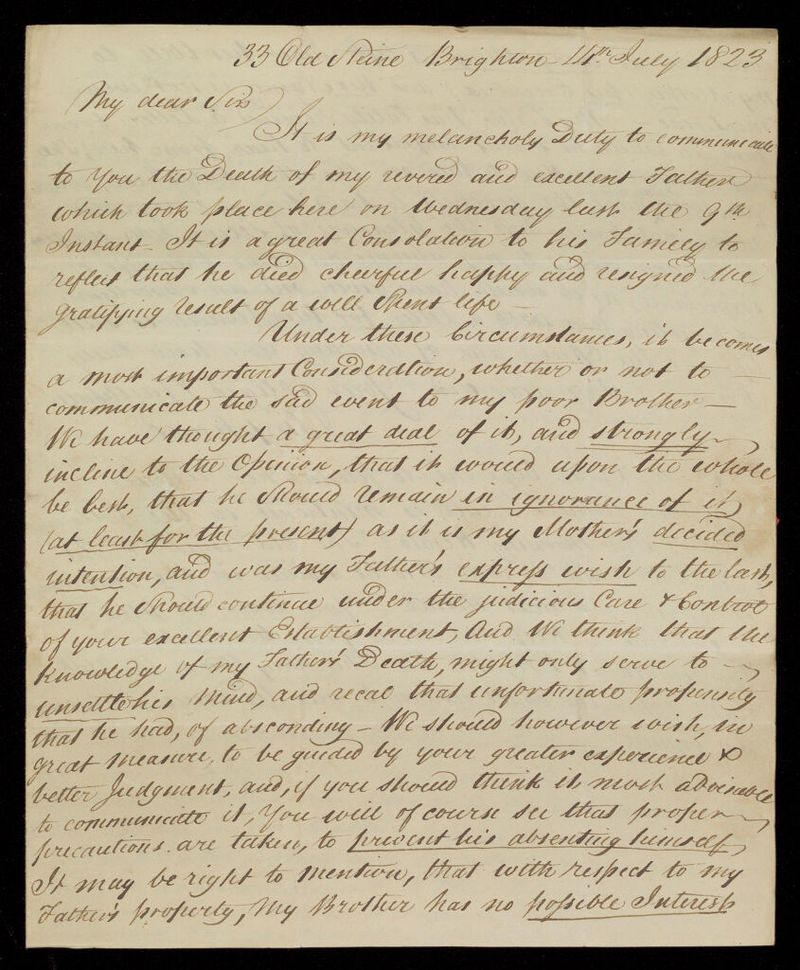 33 Old Steine Brighton 14th July 1823
My dear Sir
It is my melancholy Duty to communicate
to You the Death of my revered and excellent Father
which took place here on Wednesday last the 9th
Instant - It is a great Consolation to his Family to
reflect that he died chearful happy and resigned the
gratifying result of a well spent life -
Under these Circumstances, it becomes
a most important Consideration, whether or not to
communicate the sad event to my poor Brother -
We have thought a great deal of it, and strongly
incline to the Opinion, that it would upon the whole
be best, that he should remain in ignorance of it
(at least for the present) as it is my Mother's decided
intention, and was my Father's express wish to the last,
that he should continue under the judicious Care & Control
of your excellent Establishment, And We think that the
knowledge of my Father's Death, might only serve to
unsettle his mind, and recal that unfortunate propensity
that he had, of absconding - We should however wish, in
great measure, to be guided by your greater experience &
better Judgment, and, if you should think it most adviseable
to communicate it, You will of course see that proper
precautions are taken, to prevent his absenting himself,
It may be right to mention, that with respect to my
Father's property, My Brother has no possible Interest